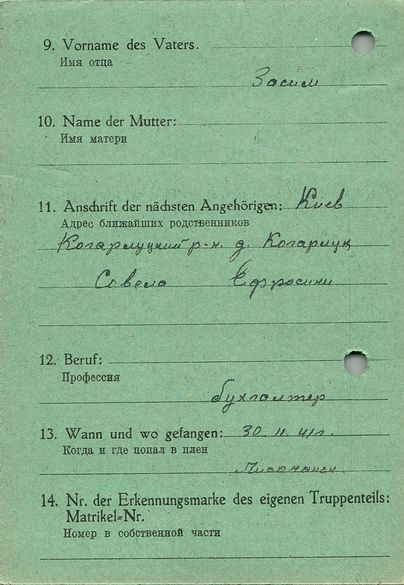 9. Vorname des Vaters.
Имя отца
Засим
10. Name der Mutter:
Имя матери
11. Anschrift der nächsten Angehörigen: Киев
Адрес ближайших родственников
Кагарлуцкий р-н. д. Кагарлук
Совела Ефросини
12. Beruf:
Профессия
бухгалтер
13. Wann und wo gefangen: 30.
Когда и где попал в плен
14. Nr. der Erkennungsmarke des eigenen Truppenteils:
Matrikel=Nr.
Номер в собственной части